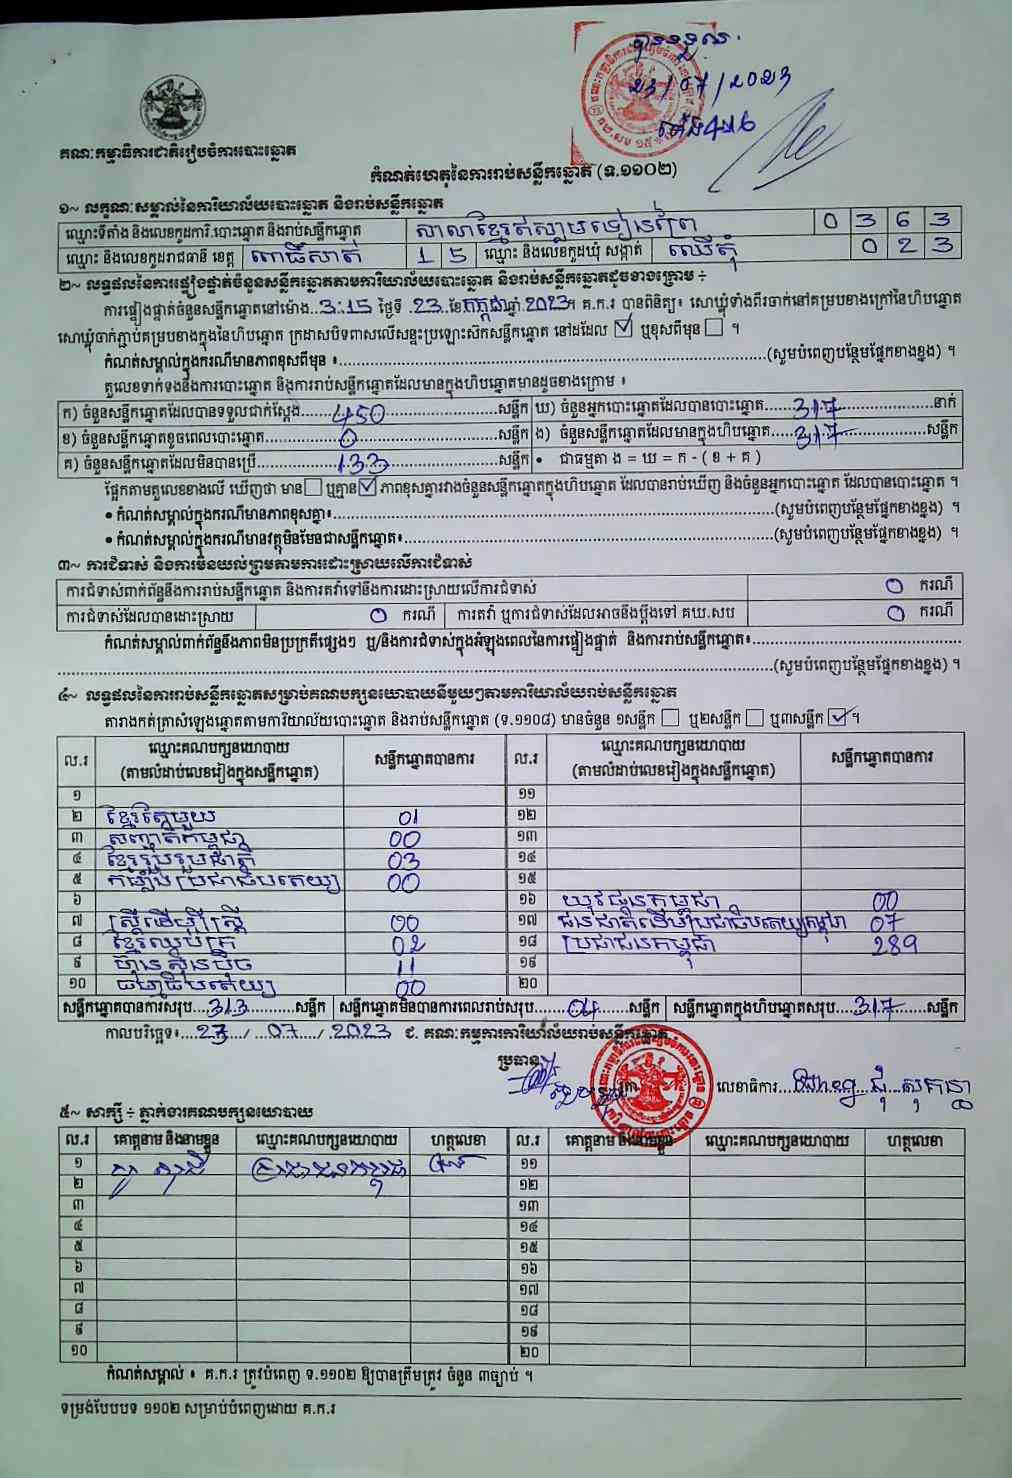 បានទទួល
23/07/2023
ម៉ោង 4:16
គណៈកម្មាធិការជាតិរៀបចំការបោះឆ្នោត
កំណត់ហេតុនៃការរាប់សន្លឹកឆ្នោត (ទ.១១០២)
១~ លក្ខណៈសម្គាល់នៃការិយាល័យបោះឆ្នោត និងរាប់សន្លឹកឆ្នោត
ឈ្មោះទីតាំង និងលេខកូដការិ.បោះឆ្នោត និងរាប់សន្លឹកឆ្នោត សាលាខ្មែរឥស្លាមទៀនព្រៃ 0 3 6 3
ឈ្មោះ និងលេខកូដរាជធានី ខេត្ត ពោធិ៍សាត់ 1 5 ឈ្មោះ និងលេខកូដឃុំ សង្កាត់ ឈើតុំ 0 2 3
២~ លទ្ធផលនៃការផ្ទៀងផ្ទាត់ចំនួនសន្លឹកឆ្នោតតាមការិយាល័យបោះឆ្នោត និងរាប់សន្លឹកឆ្នោតដូចខាងក្រោម ÷
ការផ្ទៀងផ្ទាត់ចំនួនសន្លឹកឆ្នោតនៅម៉ោង 3:15 ថ្ងៃទី 23 ខែ កក្កដា ឆ្នាំ 2023។ គ.ក.រ បានពិនិត្យ៖ សោឃ្លុំទាំងពីរចាក់នៅគម្របខាងក្រៅនៃហិបឆ្នោត
សោឃ្លុំចាក់ភ្ជាប់គម្របខាងក្នុងនៃហិបឆ្នោត ក្រដាសបិទពាសលើសន្ទះប្រឡោះស៊កសន្លឹកឆ្នោត នៅដដែល ☑ ឬខុសពីមុន ☐ ។
កំណត់សម្គាល់ក្នុងករណីមានភាពខុសពីមុន ៖ (សូមបំពេញបន្ថែមផ្នែកខាងខ្នង) ។
តួលេខទាក់ទងនឹងការបោះឆ្នោត និងការរាប់សន្លឹកឆ្នោតដែលមានក្នុងហិបឆ្នោតមានដូចខាងក្រោម ៖
ក) ចំនួនសន្លឹកឆ្នោតដែលបានទទួលជាក់ស្តែង 450 សន្លឹក ឃ) ចំនួនអ្នកបោះឆ្នោតដែលបានបោះឆ្នោត 317 នាក់
ខ) ចំនួនសន្លឹកឆ្នោតខូចពេលបោះឆ្នោត 0 សន្លឹក ង) ចំនួនសន្លឹកឆ្នោតដែលមានក្នុងហិបឆ្នោត 317 សន្លឹក
គ) ចំនួនសន្លឹកឆ្នោតដែលមិនបានប្រើ 133 សន្លឹក • ជាធម្មតា ង = ឃ = ក - ( ខ + គ )
ផ្អែកតាមតួលេខខាងលើ ឃើញថា មាន ☐ ឬគ្មាន ☑ ភាពខុសគ្នារវាងចំនួនសន្លឹកឆ្នោតក្នុងហិបឆ្នោត ដែលបានរាប់ឃើញ និងចំនួនអ្នកបោះឆ្នោត ដែលបានបោះឆ្នោត ។
• កំណត់សម្គាល់ក្នុងករណីមានភាពខុសគ្នា៖ (សូមបំពេញបន្ថែមផ្នែកខាងខ្នង) ។
• កំណត់សម្គាល់ក្នុងករណីមានវត្ថុមិនមែនជាសន្លឹកឆ្នោត៖ (សូមបំពេញបន្ថែមផ្នែកខាងខ្នង) ។
៣~ ការជំទាស់ និងការមិនយល់ព្រមតាមការដោះស្រាយលើការជំទាស់
ការជំទាស់ពាក់ព័ន្ធនឹងការរាប់សន្លឹកឆ្នោត និងការតវ៉ាទៅនឹងការដោះស្រាយលើការជំទាស់ 0 ករណី
ការជំទាស់ដែលបានដោះស្រាយ 0 ករណី ការតវ៉ា ឬការជំទាស់ដែលអាចនឹងប្តឹងទៅ គឃ.សប 0 ករណី
កំណត់សម្គាល់ពាក់ព័ន្ធនឹងភាពមិនប្រក្រតីផ្សេងៗ ឬ/និងការជំទាស់ក្នុងអំឡុងពេលនៃការផ្ទៀងផ្ទាត់ និងការរាប់សន្លឹកឆ្នោត៖
(សូមបំពេញបន្ថែមផ្នែកខាងខ្នង) ។
៤~ លទ្ធផលនៃការរាប់សន្លឹកឆ្នោតសម្រាប់គណបក្សនយោបាយនីមួយៗតាមការិយាល័យរាប់សន្លឹកឆ្នោត
តារាងកត់ត្រាសំឡេងឆ្នោតតាមការិយាល័យបោះឆ្នោត និងរាប់សន្លឹកឆ្នោត (ទ.១១០៨) មានចំនួន ១សន្លឹក ☐ ឬ២សន្លឹក ☐ ឬ៣សន្លឹក ☑ ។
ល.រ ឈ្មោះគណបក្សនយោបាយ (តាមលំដាប់លេខរៀងក្នុងសន្លឹកឆ្នោត) សន្លឹកឆ្នោតបានការ ល.រ ឈ្មោះគណបក្សនយោបាយ (តាមលំដាប់លេខរៀងក្នុងសន្លឹកឆ្នោត) សន្លឹកឆ្នោតបានការ
១ ១១
២ ខ្មែរតែមួយ 01 ១២
៣ សញ្ជាតិកម្ពុជា 00 ១៣
៤ ខ្មែររួបរួមជាតិ 03 ១៤
៥ កម្លាំងប្រជាធិបតេយ្យ 00 ១៥
៦ ១៦ យុវជនកម្ពុជា 00
៧ ស្ត្រីដើម្បីស្ត្រី 00 ១៧ ជនជាតិដើមប្រជាធិបតេយ្យកម្ពុជា 07
៨ ខ្មែរឈប់ក្រ 02 ១៨ ប្រជាជនកម្ពុជា 289
៩ ហ៊្វុនស៊ិនប៉ិច 11 ១៩
១០ ធម្មាធិបតេយ្យ 00 ២០
សន្លឹកឆ្នោតបានការសរុប 313 សន្លឹក សន្លឹកឆ្នោតមិនបានការពេលរាប់សរុប 04 សន្លឹក សន្លឹកឆ្នោតក្នុងហិបឆ្នោតសរុប 317 សន្លឹក
កាលបរិច្ឆេទ៖ 23 / 07 / 2023 ជ. គណៈកម្មការការិយាល័យរាប់សន្លឹកឆ្នោត
ប្រធាន លេខាធិការ
៥~ សាក្សី ÷ ភ្នាក់ងារគណបក្សនយោបាយ
ល.រ គោត្តនាម និងនាមខ្លួន ឈ្មោះគណបក្សនយោបាយ ហត្ថលេខា ល.រ គោត្តនាម និងនាមខ្លួន ឈ្មោះគណបក្សនយោបាយ ហត្ថលេខា
១ ប្រជាជនកម្ពុជា ១១
២ ១២
៣ ១៣
៤ ១៤
៥ ១៥
៦ ១៦
៧ ១៧
៨ ១៨
៩ ១៩
១០ ២០
កំណត់សម្គាល់ ៖ គ.ក.រ ត្រូវបំពេញ ទ.១១០២ ឱ្យបានត្រឹមត្រូវ ចំនួន ៣ច្បាប់ ។
ទម្រង់បែបបទ ១១០២ សម្រាប់បំពេញដោយ គ.ក.រ